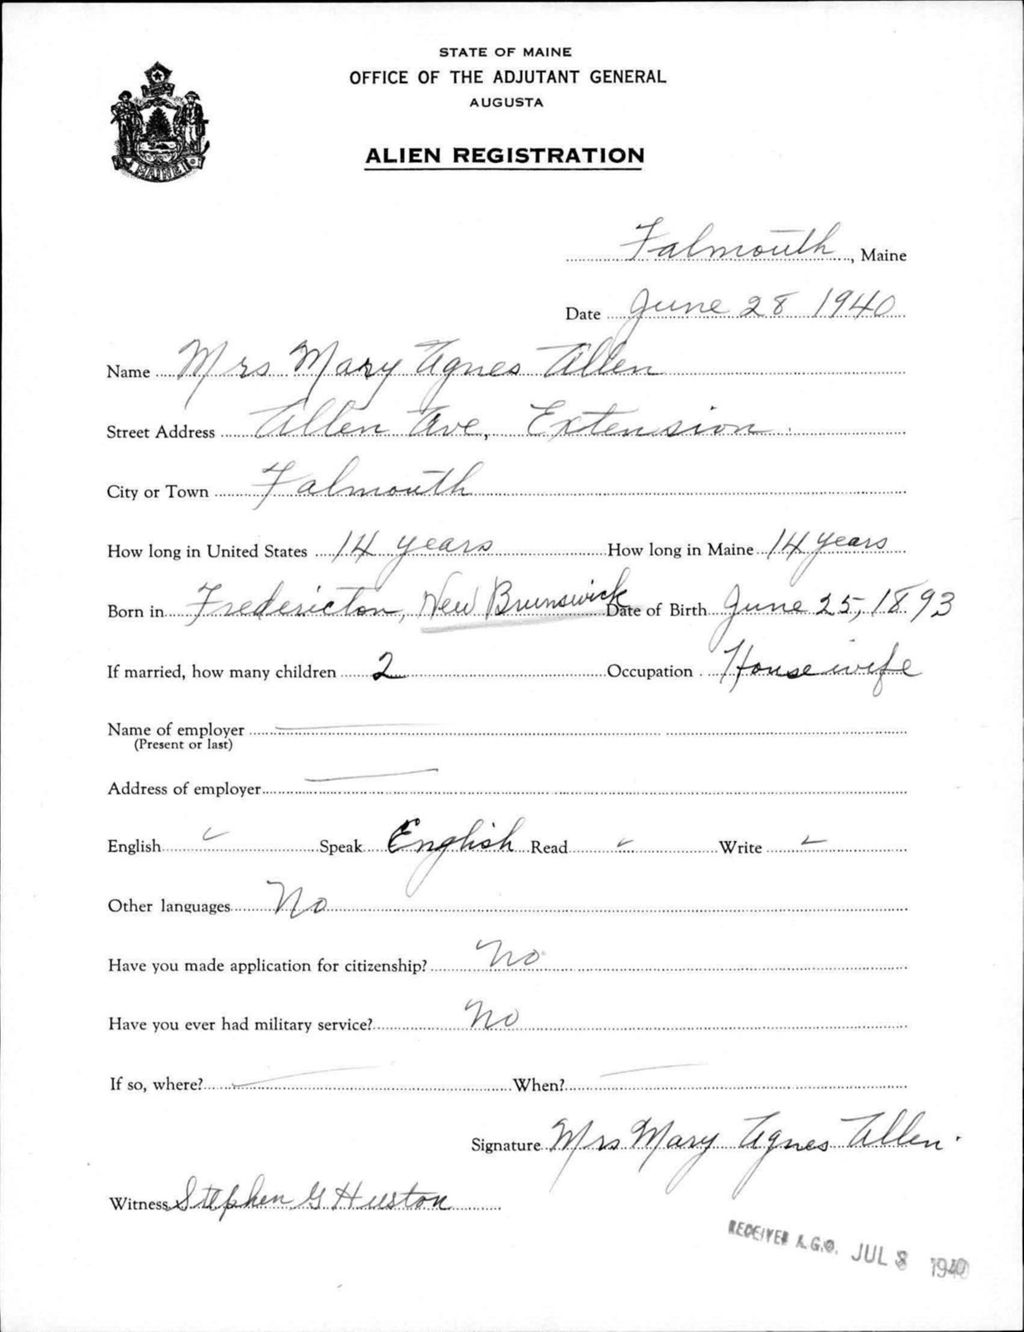 STATE OF MAINE
OFFICE OF THE ADJUTANT GENERAL
AUGUSTA
ALIEN REGISTRATION
MAINE
Falmouth, Maine
Date June 28 1940
Name Mrs Mary Agnes Allen
Street Address Allen Ave, Extension
City or Town Falmouth
How long in United States 14 years How long in Maine 14 years
Born in Fredericton, New Brunswick Date of Birth June 25, 1893
If married, how many children 2 Occupation Housewife
Name of employer
(Present or last)
Address of employer
English ✓ Speak English Read ✓ Write ✓
Other languages No
Have you made application for citizenship? No
Have you ever had military service? No
If so, where? When?
Signature Mrs Mary Agnes Allen.
Witness Stephen G Huston
RECEIVED A.G.O. JUL 8 1940